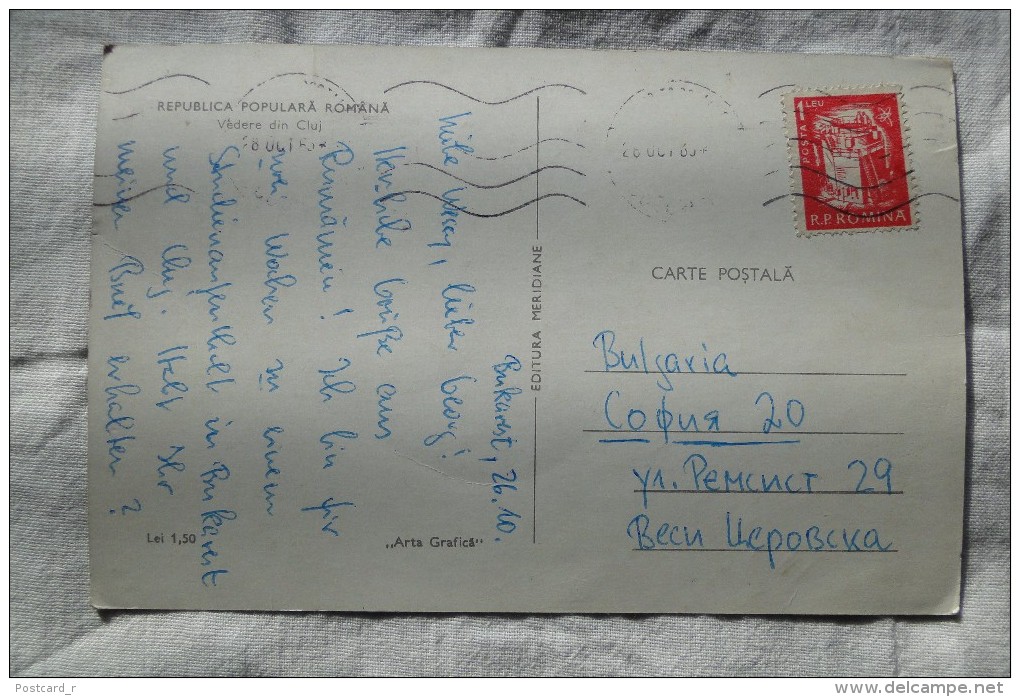 REPUBLICA POPULARĂ ROMÂNĂ
Vedere din Cluj
28 OCT 63
28 OCT 63
POSTA 1 LEU
R.P. ROMINA
CARTE POȘTALĂ
EDITURA MERIDIANE
Bukarest, 26.10.
lieber Georg!
Herzliche Grüße aus
Rumänien! Ich bin für
zwei Wochen zu einem
Studienaufenthalt in Bukarest
und Cluj. Habt Ihr
meinen Brief erhalten?
Bulgaria
София 20
ул. Ремсист 29
Веси Церовска
Lei 1,50
„Arta Grafică"
Postcard_r
www.delcampe.net